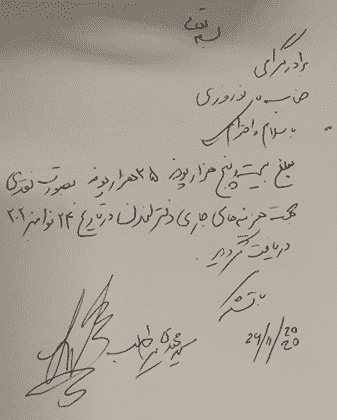 بسمه تعالی
برادر گرامی
جناب نوروزی
با سلام و احترام
مبلغ بیست و پنج هزار پوند ۲۵ هزار پوند بصورت نقدی
جهت هزینه‌های جاری دفتر لندن در تاریخ ۲۴ نوامبر ۲۰۲۰
دریافت گردید.
با تشکر
سید مهدی طالب
24/11/2020